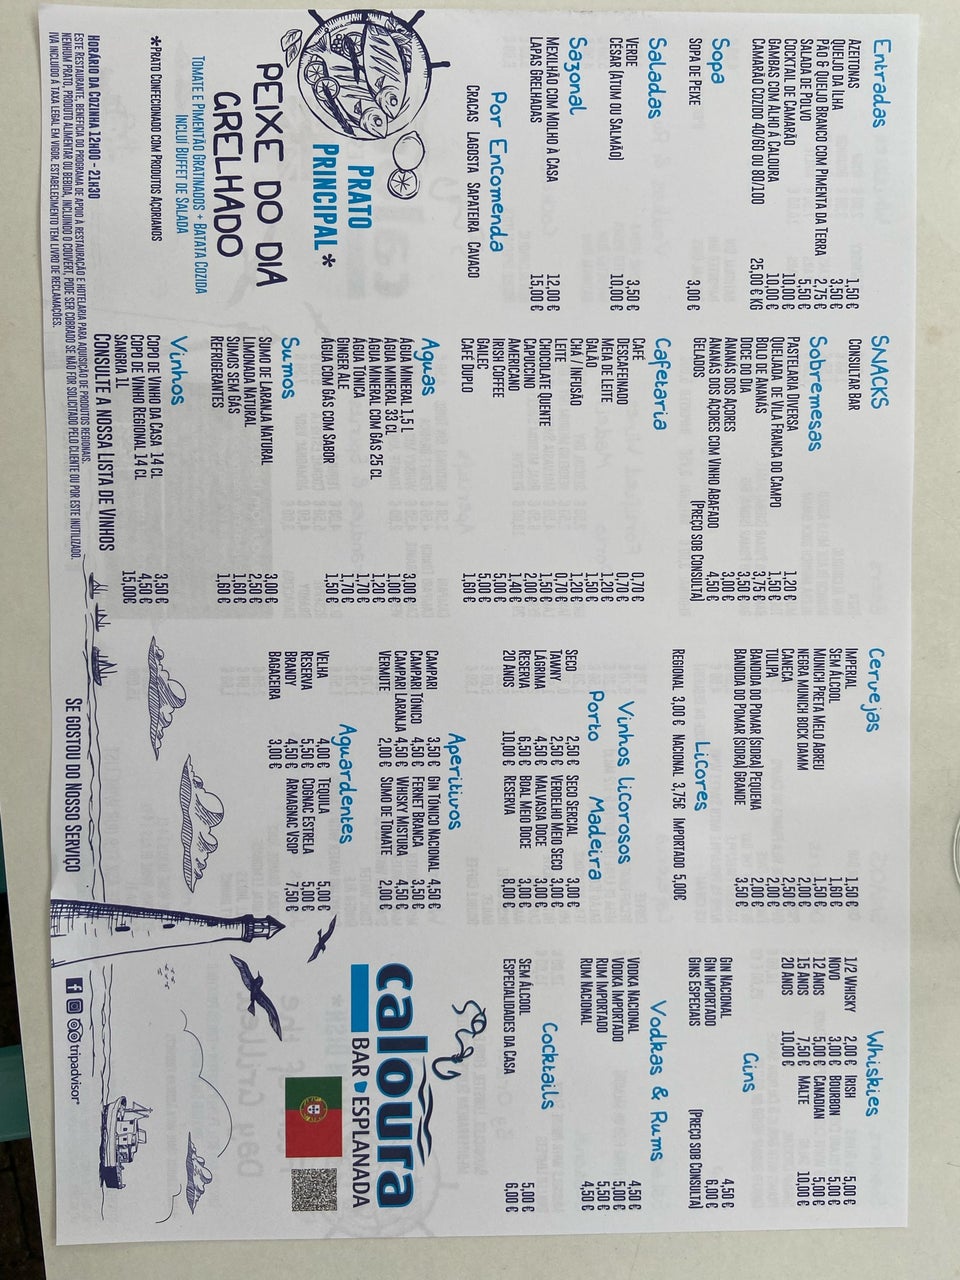 Entradas
AZEITONAS 1,50 €
QUEIJO DA ILHA 3,50 €
PÃO & QUEIJO BRANCO COM PIMENTA DA TERRA 2,75 €
SALADA DE POLVO 5,50 €
COCKTAIL DE CAMARÃO 10,00 €
GAMBAS COM ALHO À CALOURA 10,00 €
CAMARÃO COZIDO 40/60 OU 80/100 25,00 € KG
Sopa
SOPA DE PEIXE 3,00 €
Saladas
VERDE 3,50 €
CESAR (ATUM OU SALMÃO) 10,00 €
Sazonal
MEXILHÃO COM MOLHO À CASA 12,00 €
LAPAS GRELHADAS 15,00 €
Por Encomenda
CRACAS LAGOSTA SAPATEIRA CAVACO
PRATO
PRINCIPAL*
PEIXE DO DIA
GRELHADO
TOMATE E PIMENTÃO GRATINADOS + BATATA COZIDA
INCLUI BUFFET DE SALADA
*PRATO CONFECIONADO COM PRODUTOS AÇORIANOS
HORÁRIO DA COZINHA 12H00 - 21H30
ESTE RESTAURANTE, BENEFICIA DO PROGRAMA DE APOIO À RESTAURAÇÃO E HOTELARIA PARA AQUISIÇÃO DE PRODUTOS REGIONAIS.
NENHUM PRATO, PRODUTO ALIMENTAR OU BEBIDA, INCLUINDO O COUVERT, PODE SER COBRADO SE NÃO FOR SOLICITADO PELO CLIENTE OU POR ESTE INUTILIZADO.
IVA INCLUÍDO À TAXA LEGAL EM VIGOR. ESTABELECIMENTO TEM LIVRO DE RECLAMAÇÕES.
SNACKS
CONSULTAR BAR
Sobremesas
PASTELARIA DIVERSA 1,20 €
QUEIJADA DE VILA FRANCA DO CAMPO 1,50 €
BOLO DE ANANÁS 3,75 €
DOCE DO DIA 3,50 €
ANANÁS DOS AÇORES 3,00 €
ANANÁS DOS AÇORES COM VINHO ABAFADO 4,50 €
GELADOS (PREÇO SOB CONSULTA)
Cafetaria
CAFÉ 0,70 €
DESCAFEINADO 0,70 €
MEIA DE LEITE 1,20 €
GALÃO 1,50 €
CHÁ / INFUSÃO 1,20 €
LEITE 0,70 €
CHOCOLATE QUENTE 1,50 €
CAPUCCINO 2,00 €
AMERICANO 1,40 €
IRISH COFFEE 5,00 €
GAILEC 5,00 €
CAFÉ DUPLO 1,60 €
Aguas
ÁGUA MINERAL 1,5 L 3,00 €
ÁGUA MINERAL 33 CL 1,00 €
ÁGUA MINERAL COM GÁS 25 CL 1,20 €
ÁGUA TÓNICA 1,70 €
GINGER ALE 1,70 €
ÁGUA COM GÁS COM SABOR 1,50 €
Sumos
SUMO DE LARANJA NATURAL 3,00 €
LIMONADA NATURAL 2,50 €
SUMOS SEM GÁS 1,60 €
REFRIGERANTES 1,60 €
Vinhos
COPO DE VINHO DA CASA 14 CL 3,50 €
COPO DE VINHO REGIONAL 14 CL 4,50 €
SANGRIA 1L 15,00€
CONSULTE A NOSSA LISTA DE VINHOS
Cervejas
IMPERIAL 1,50 €
SEM ÁLCOOL 1,60 €
MUNICH PRETA MELO ABREU 1,50 €
NEGRA MUNICH BOCK DAMM 2,00 €
CANECA 2,50 €
TULIPA 2,00 €
BANDIDA DO POMAR (SIDRA) PEQUENA 2,00 €
BANDIDA DO POMAR (SIDRA) GRANDE 3,50 €
Licores
REGIONAL 3,00 € NACIONAL 3,75€ IMPORTADO 5,00€
Vinhos licorosos
Porto Madeira
SECO 2,50 € SECO SERCIAL 3,00 €
TAWNY 2,50 € VERDELHO MEIO SECO 3,00 €
LÁGRIMA 4,50 € MALVASIA DOCE 3,00 €
RESERVA 6,50 € BOAL MEIO DOCE 3,00 €
20 ANOS 10,00 € RESERVA 8,00 €
Aperitivos
CAMPARI 3,50 € GIN TÓNICO NACIONAL 4,50 €
CAMPARI TÓNICO 4,50 € FERNET BRANCA 3,50 €
CAMPARI LARANJA 4,50 € WHISKY MISTURA 4,50 €
VERMUTE 2,00 € SUMO DE TOMATE 2,00 €
Aguardentes
VELHA 4,00 € TEQUILA 5,00 €
RESERVA 5,50 € COGNAC ESTRELA 5,00 €
BRANDY 4,50 € ARMAGNAC VSOP 7,50 €
BAGACEIRA 3,00 €
SE GOSTOU DO NOSSO SERVIÇO
tripadvisor
Whiskies
1/2 WHISKY 2,00 € IRISH 5,00 €
NOVO 3,00 € BOURBON 5,00 €
12 ANOS 5,00 € CANADIAN 5,00 €
15 ANOS 7,50 € MALTE 10,00 €
20 ANOS 10,00 €
Gins
GIN NACIONAL 4,50 €
GIN IMPORTADO 6,00 €
GINS ESPECIAIS (PREÇO SOB CONSULTA)
Vodkas & Rums
VODKA NACIONAL 4,50 €
VODKA IMPORTADO 5,00 €
RUM IMPORTADO 5,50 €
RUM NACIONAL 4,50 €
Cocktails
SEM ÁLCOOL 5,00 €
ESPECIALIDADES DA CASA 6,00 €
caloura
BAR ESPLANADA